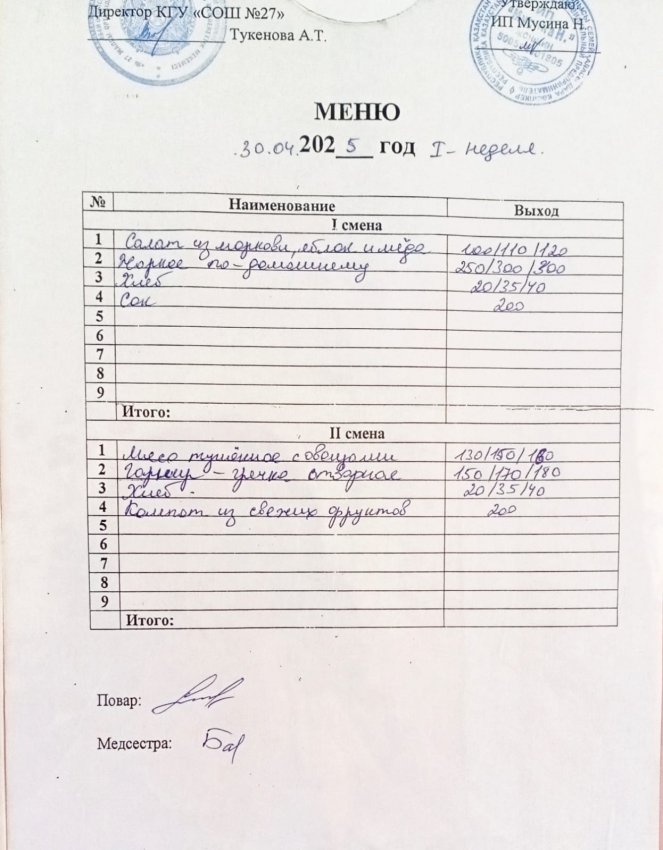 Директор КГУ «СОШ №27»
Тукенова А.Т.
Утверждаю
ИП Мусина Н.
МЕНЮ
30.04.2025 год I - неделя.
№ Наименование Выход
I смена
1 Салат из моркови, яблок и мёда 100/110/120
2 Жаркое по-домашнему 250/300/300
3 Хлеб 20/35/40
4 Сок 200
5
6
7
8
9
Итого:
II смена
1 Мясо тушённое с овощами 130/150/160
2 Гарнир - гречка отварная 150/170/180
3 Хлеб. 20/35/40
4 Компот из свежих фруктов 200
5
6
7
8
9
Итого:
Повар:
Медсестра: